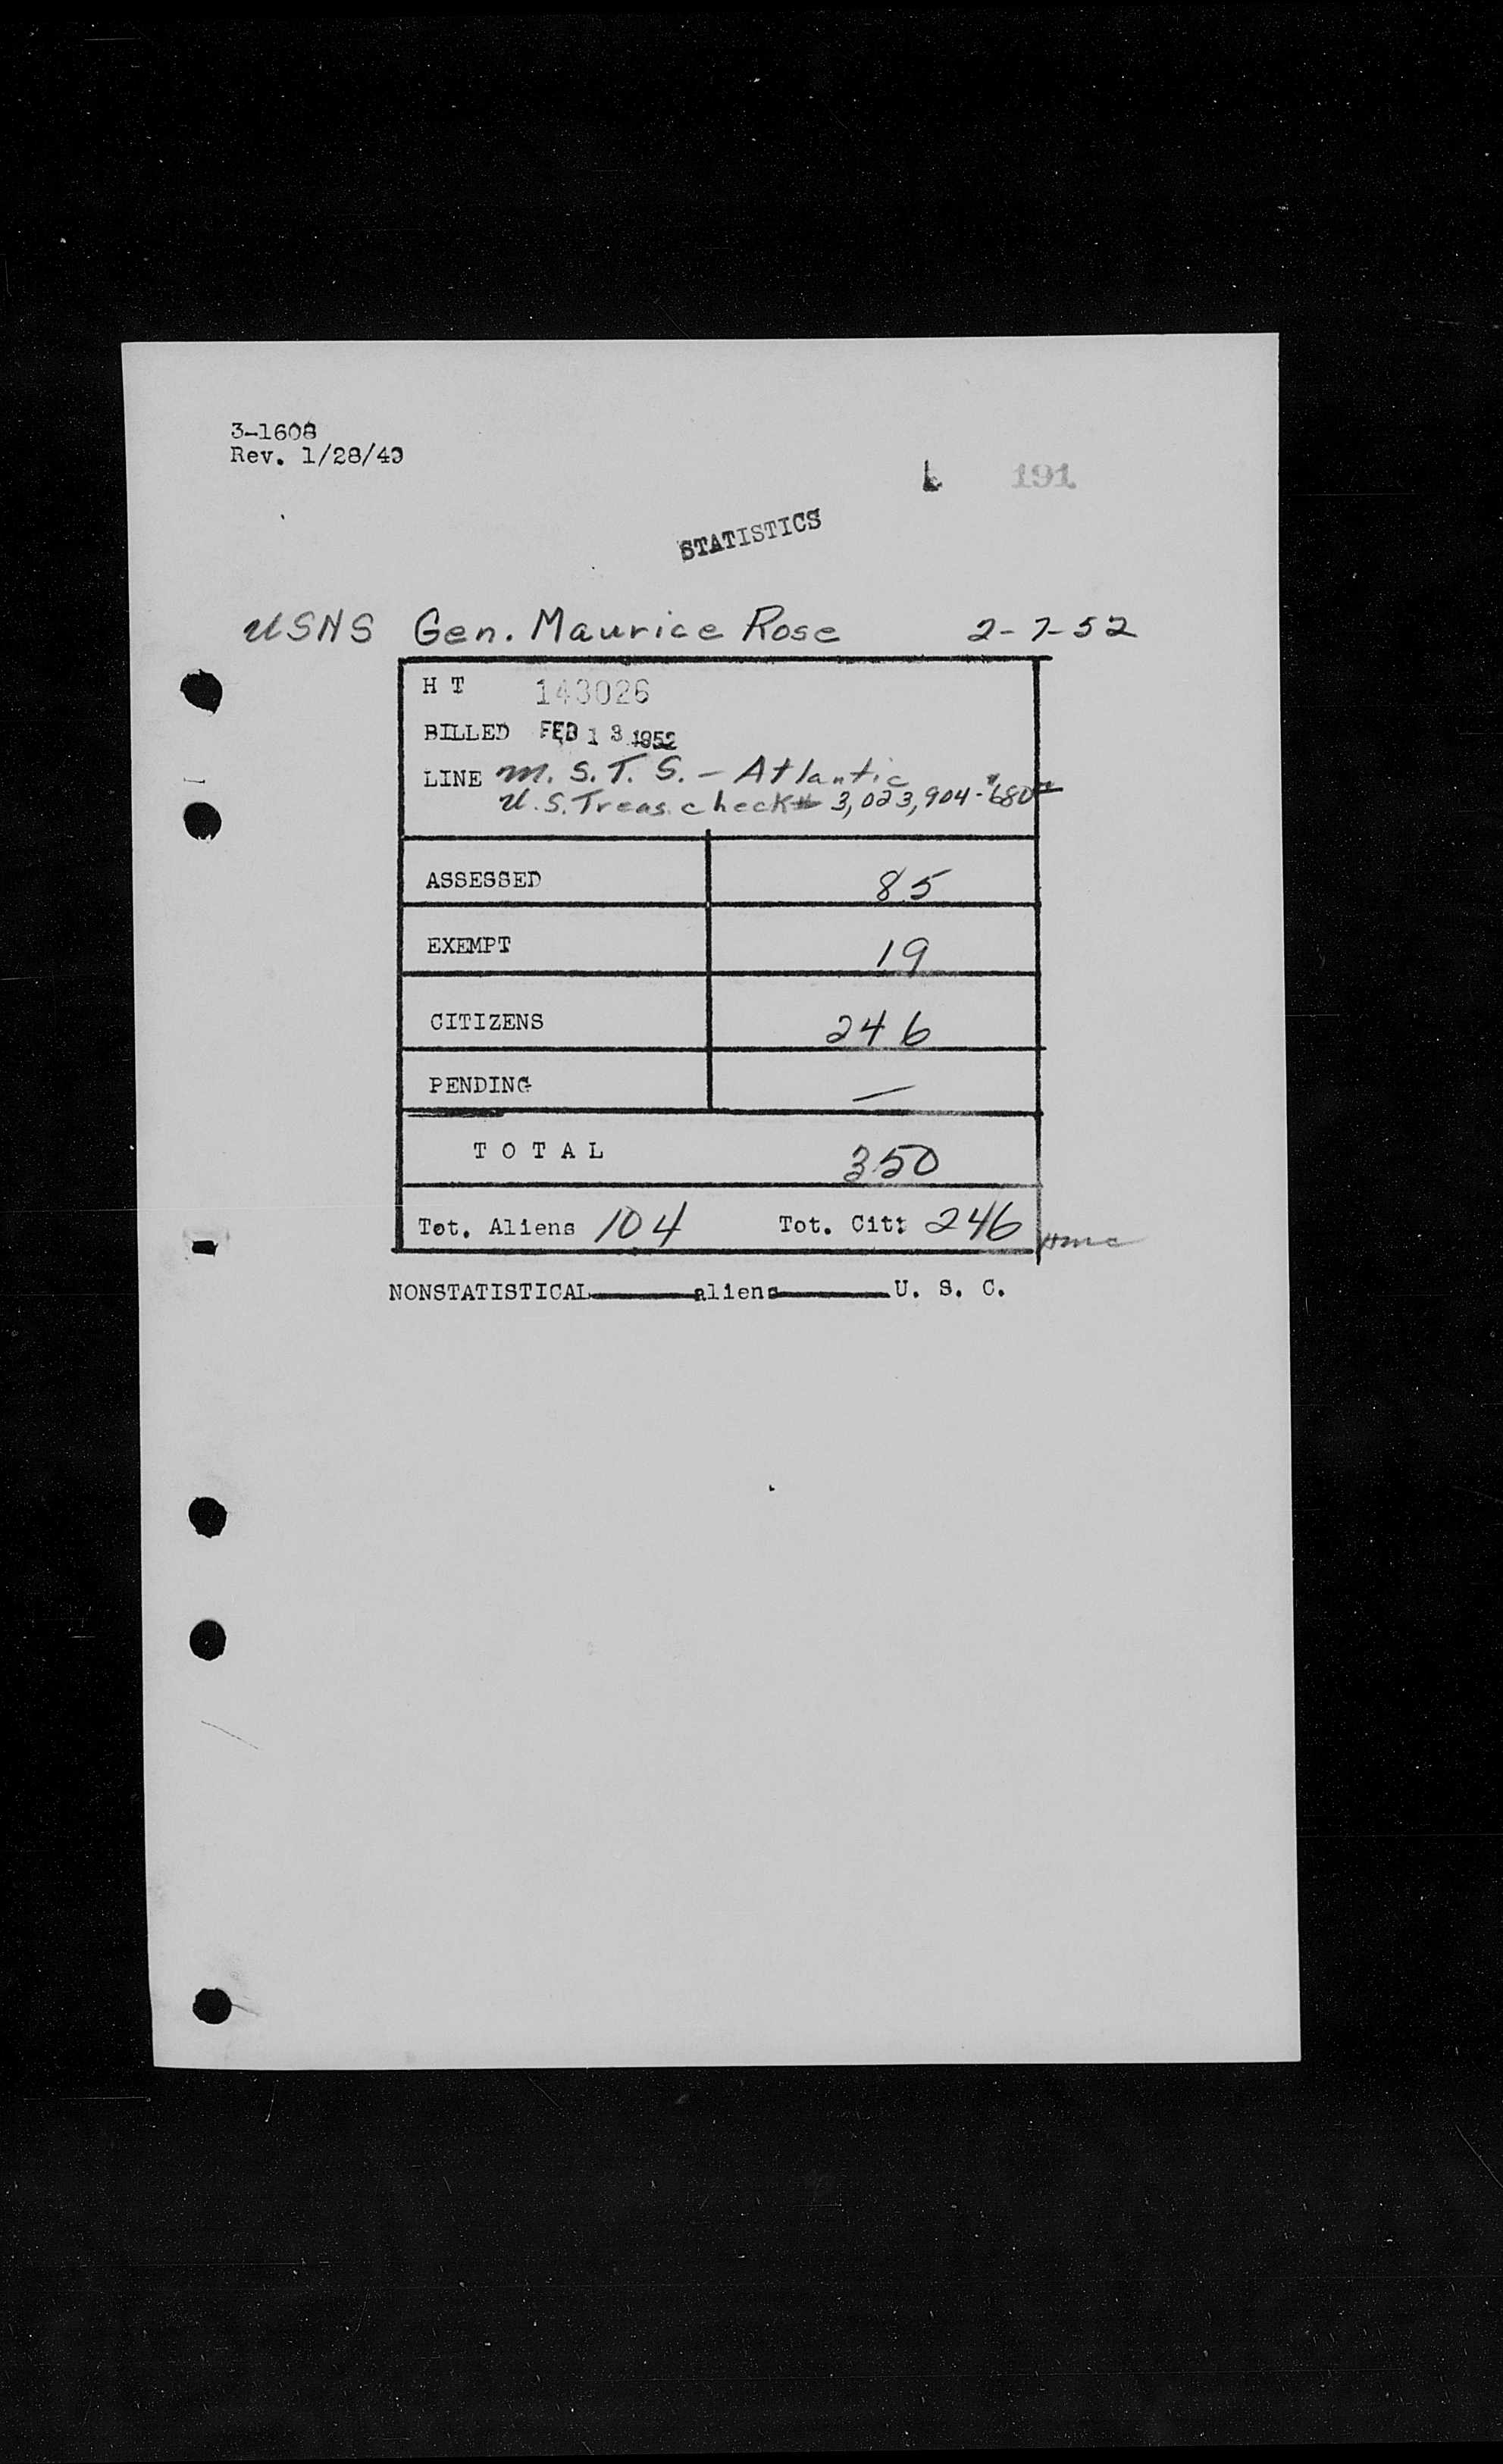 3-1608
Rev. 1/28/49
191
STATISTICS
USNS Gen. Maurice Rose 2-7-52
H T 143026
BILLED FEB 13 1952
LINE M. S. T. S. - Atlantic
U.S. Treas. check # 3,023,904 - $680
ASSESSED 85
EXEMPT 19
CITIZENS 246
PENDING —
T O T A L 350
Tot. Aliens 104 Tot. Cit: 246
NONSTATISTICAL aliens U. S. C.